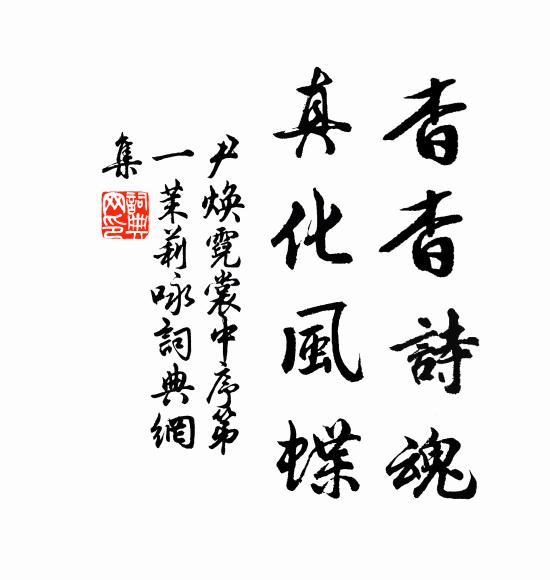 杳杳詩魂
真化風蝶
尹煥霓裳中序第
一茉莉咏詞典網
集
詞典
网印